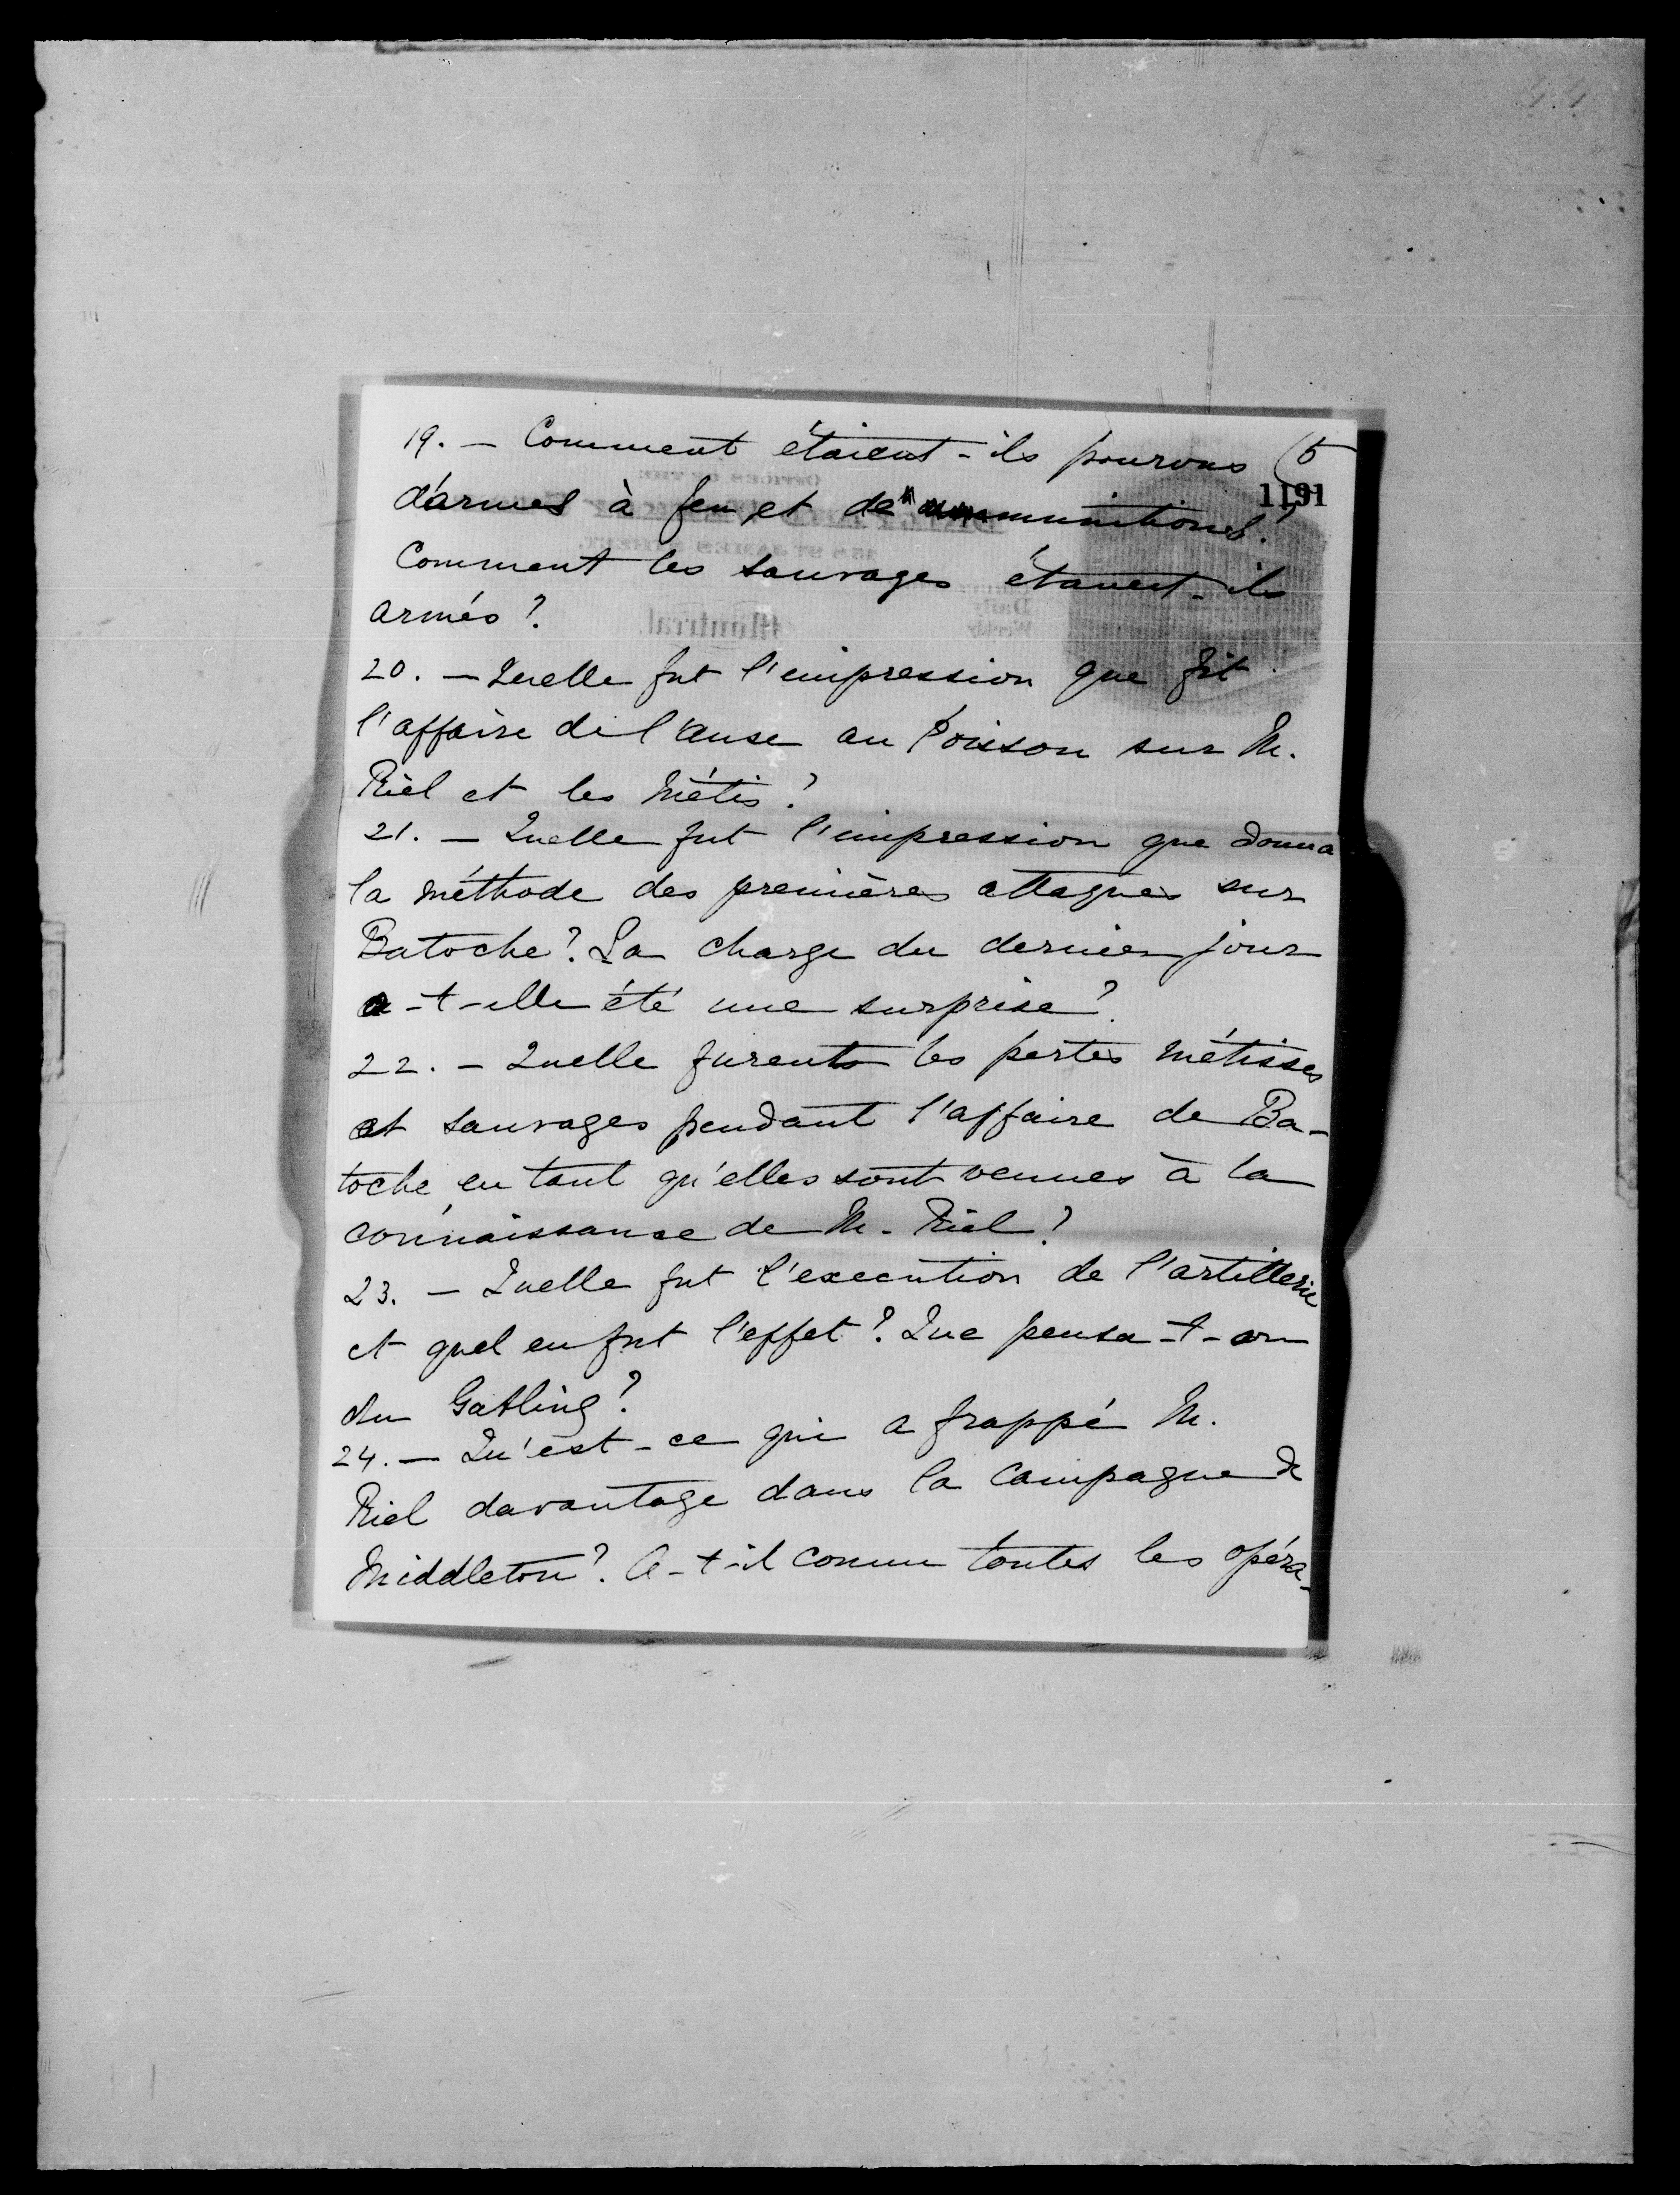 19. — Comment étaient-ils pourvus (5
1191
d'armes à feu et de munitions?
Comment les sauvages étaient-ils
armés?
Montreal.
20. — Quelle fut l'impression que fit
l'affaire de l'anse au Poisson sur M.
Riel et les Métis?
21. — Quelle fut l'impression que donna
la méthode des premières attaques sur
Batoche? La charge du dernier jour
a-t-elle été une surprise?
22. — Quelle furent les pertes métisses
et sauvages pendant l'affaire de Ba-
toche en tant qu'elles sont venues à la
connaissance de M. Riel?
23. — Quelle fut l'execution de l'artillerie
et quel en fut l'effet? Que pensa-t-on
du Gatling?
24. — Qu'est-ce qui a frappé M.
Riel davantage dans la campagne de
Middleton? A-t-il connu toutes les opéra-